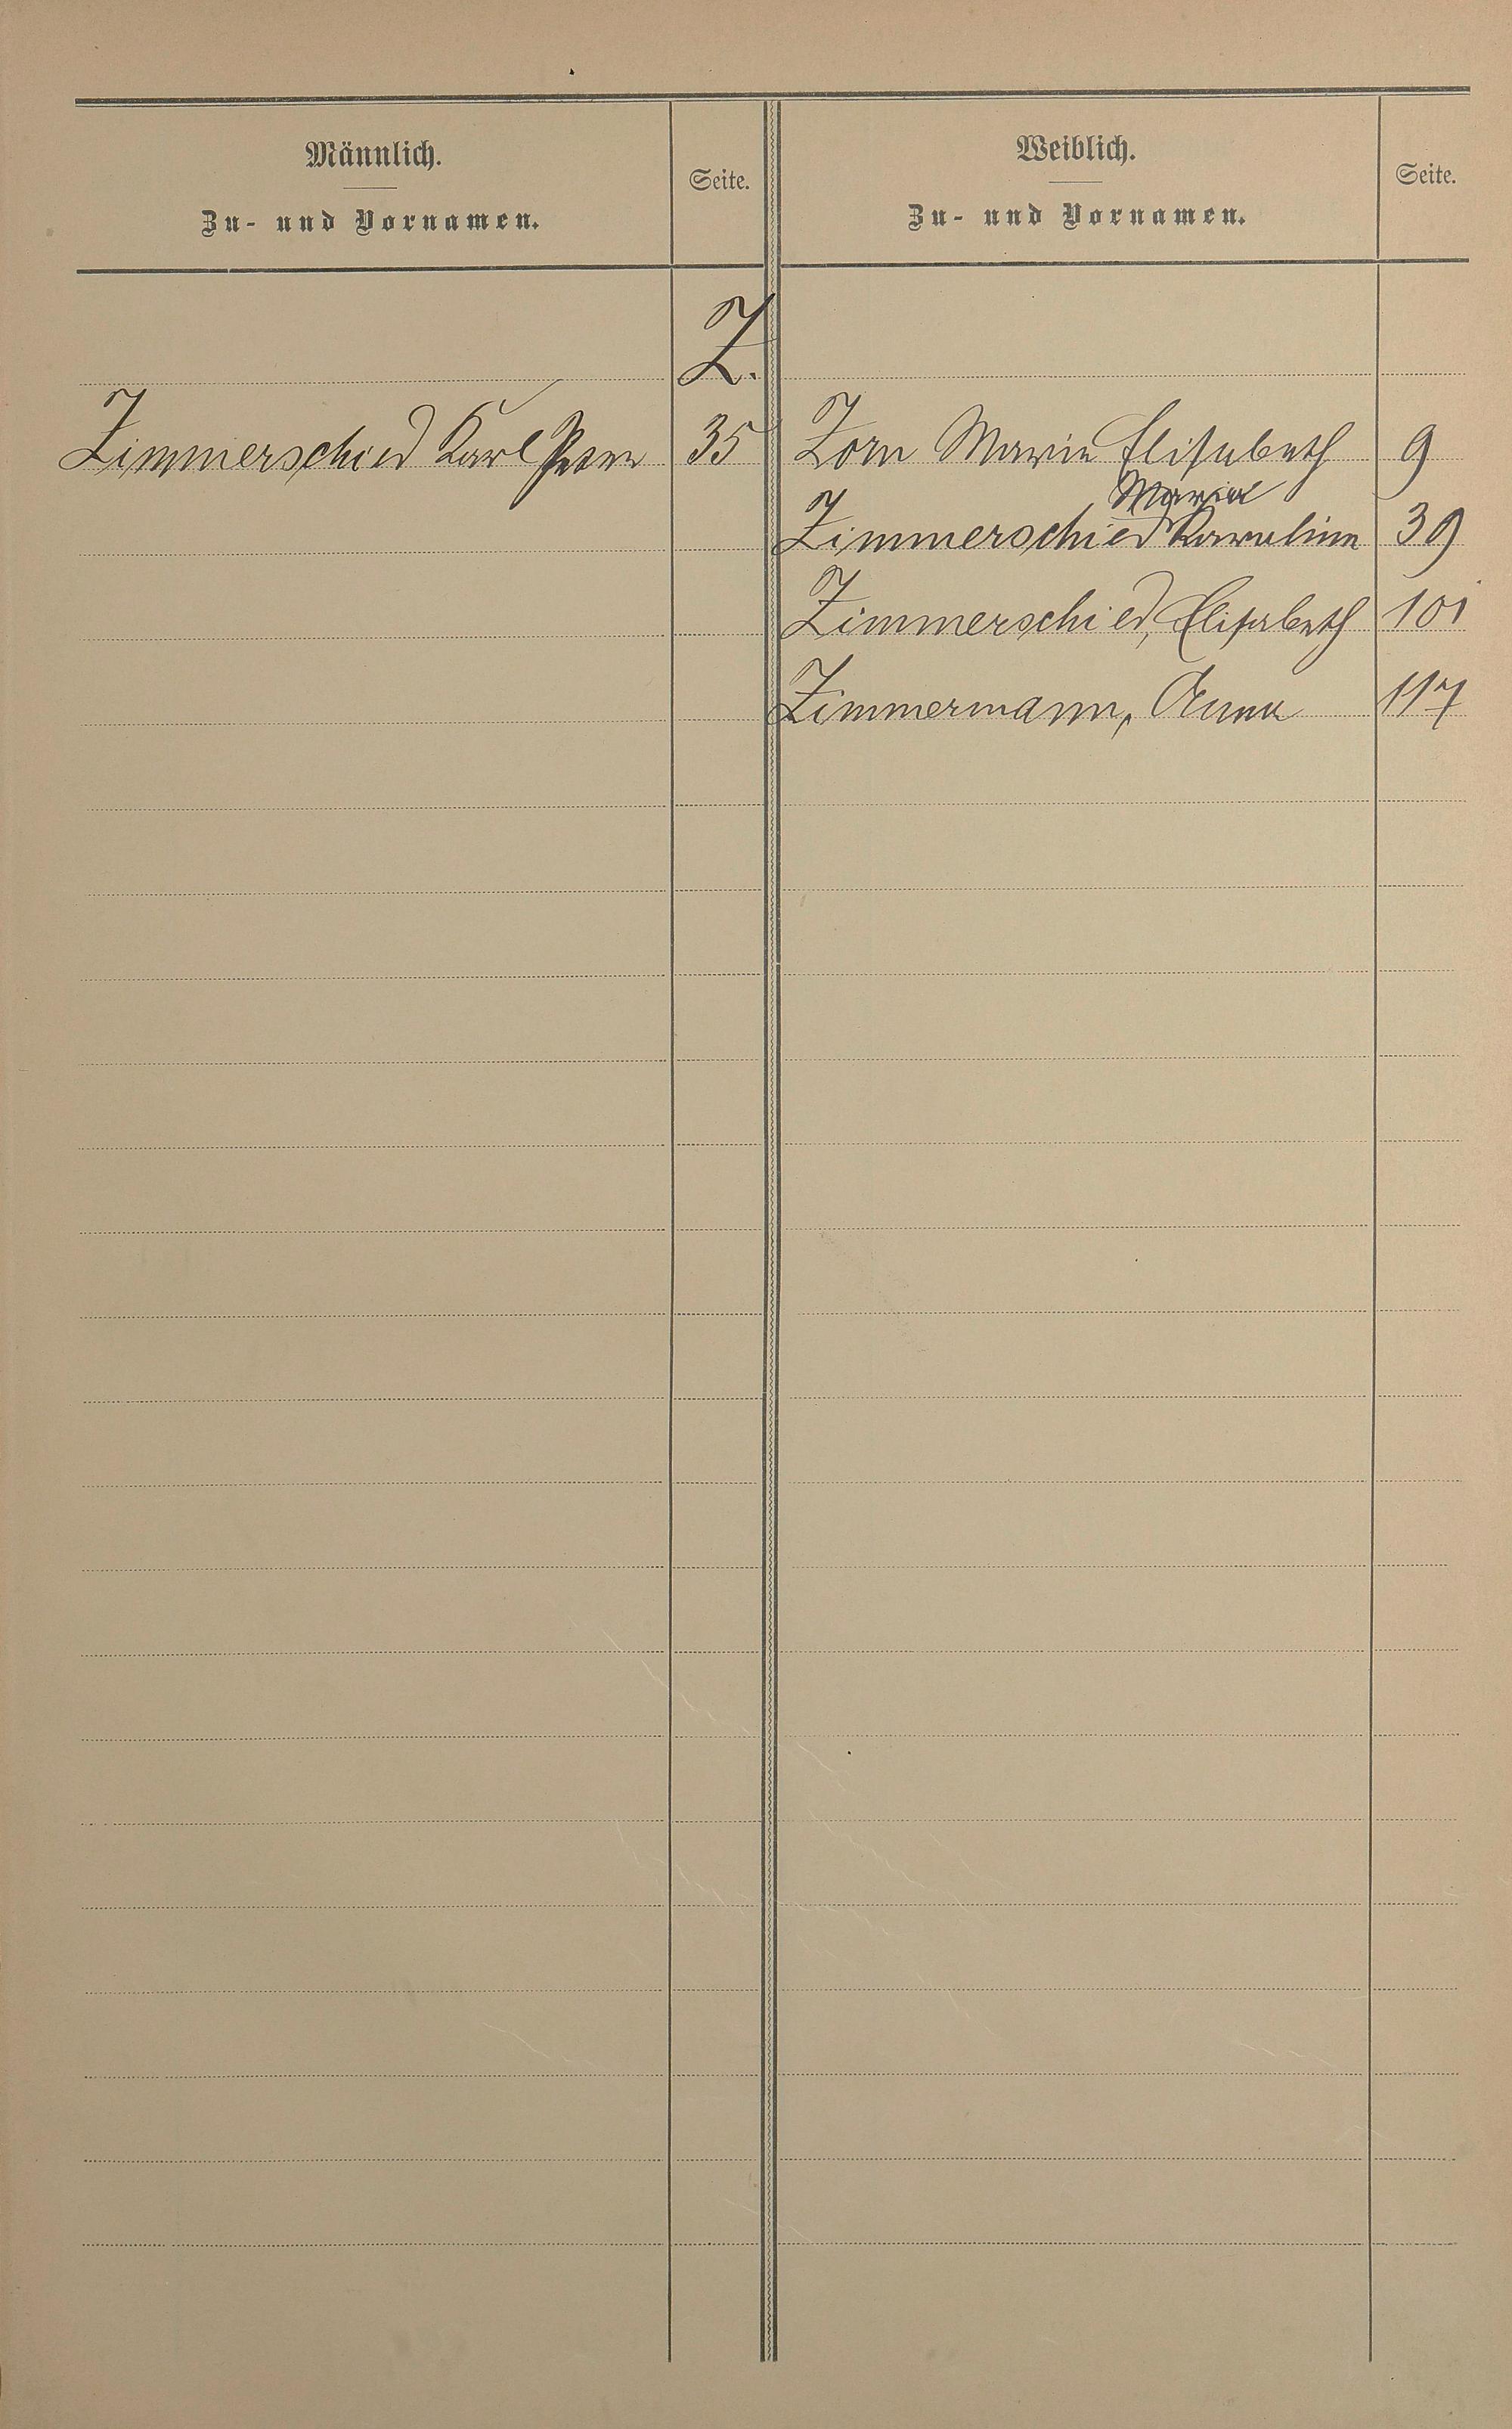 Männlich.
Zu- und Vornamen.
Seite.
Weiblich.
Zu- und Vornamen.
Seite.
Z.
Zimmerschied Karl 35
Zorn Marie Elisabeth 9
Maria
Zimmerschied Karoline 39
Zimmerschied, Elisabeth 101
Zimmermann, Anna 117